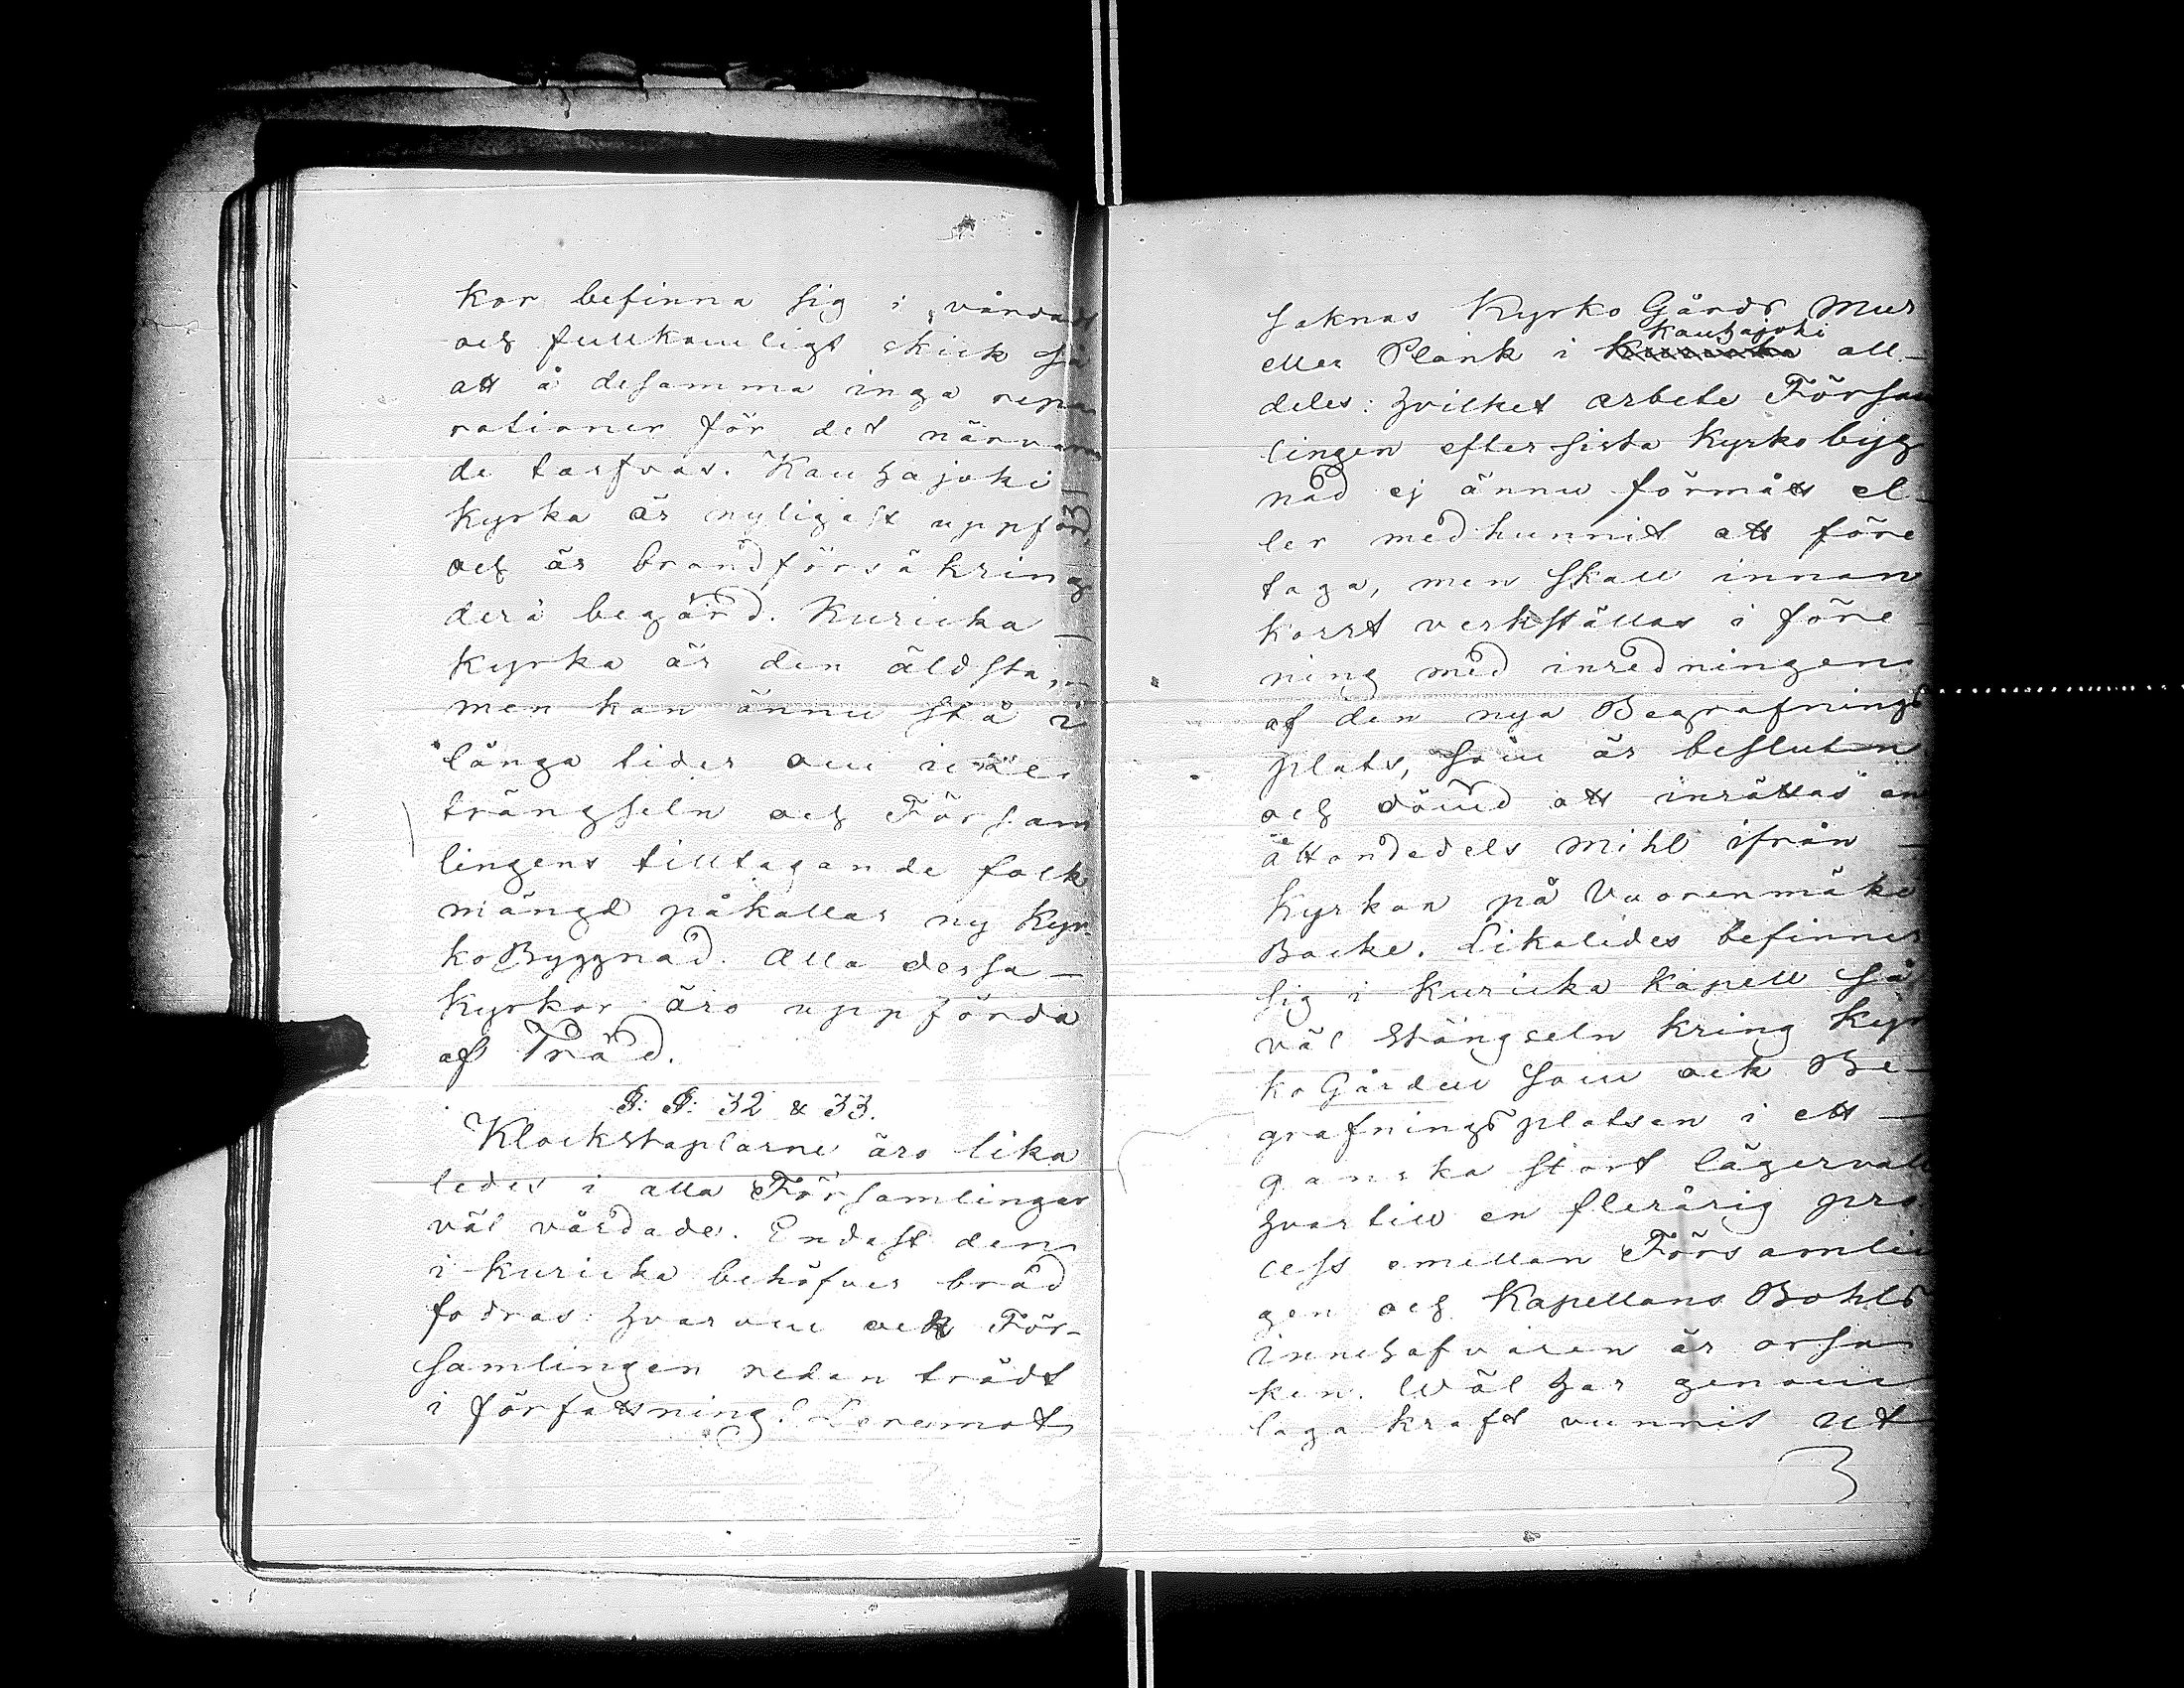 kor befinna sig i vårdadt
och fullkomligt skick så
att å desamma inga repa
rationer för det närvaran
de tarfvas. Kauhajoki
Kyrka är nyligast uppförd
och är brandförsäkring
derå begärd. Kuricka —
Kyrka är den äldsta,
men kan ännu stå i
långa tider om icke
trängseln och Försam
lingens tilltagande folk
mängd påkallar ny Kyr-
koByggnad. Alla dessa —
Kyrkor äro uppförda
af Träd.
§. §. 32 & 33.
Klockstaplarne äro lika
ledes i alla Församlingar
väl vårdade. Endast den
i Kuricka behöfver bräd
fodras: hvarom ock För-
samlingen redan trädt
i författning. Deremot
saknas Kyrko Gårds Mur
Kauhajoki
eller Plank i all-
deles: hvilket arbete Försam
lingen efter sista Kyrkobyg
nad ej ännu förmått el-
ler medhunnit att före
taga, men skall innan
korrt verkställas i före-
ning med inredningen
af den nya Begrafnings
plats, som är besluten
och dömd att inrättas en
åttondedels Mihl ifrån —
Kyrkan på Vuorenmäki
Backe. Likaledes befinner
sig i Kuricka Kapell så
väl stängseln kring Kyr
koGården som ock Be-
grafningsplatsen i ett —
ganska stort lägervall
hvartill en flerårig pro
cess emellan Församlin
gen och Kapellans Bohls
innehafvaren är orsa
ken. Wäl har genom
laga kraft vunnit ut
3